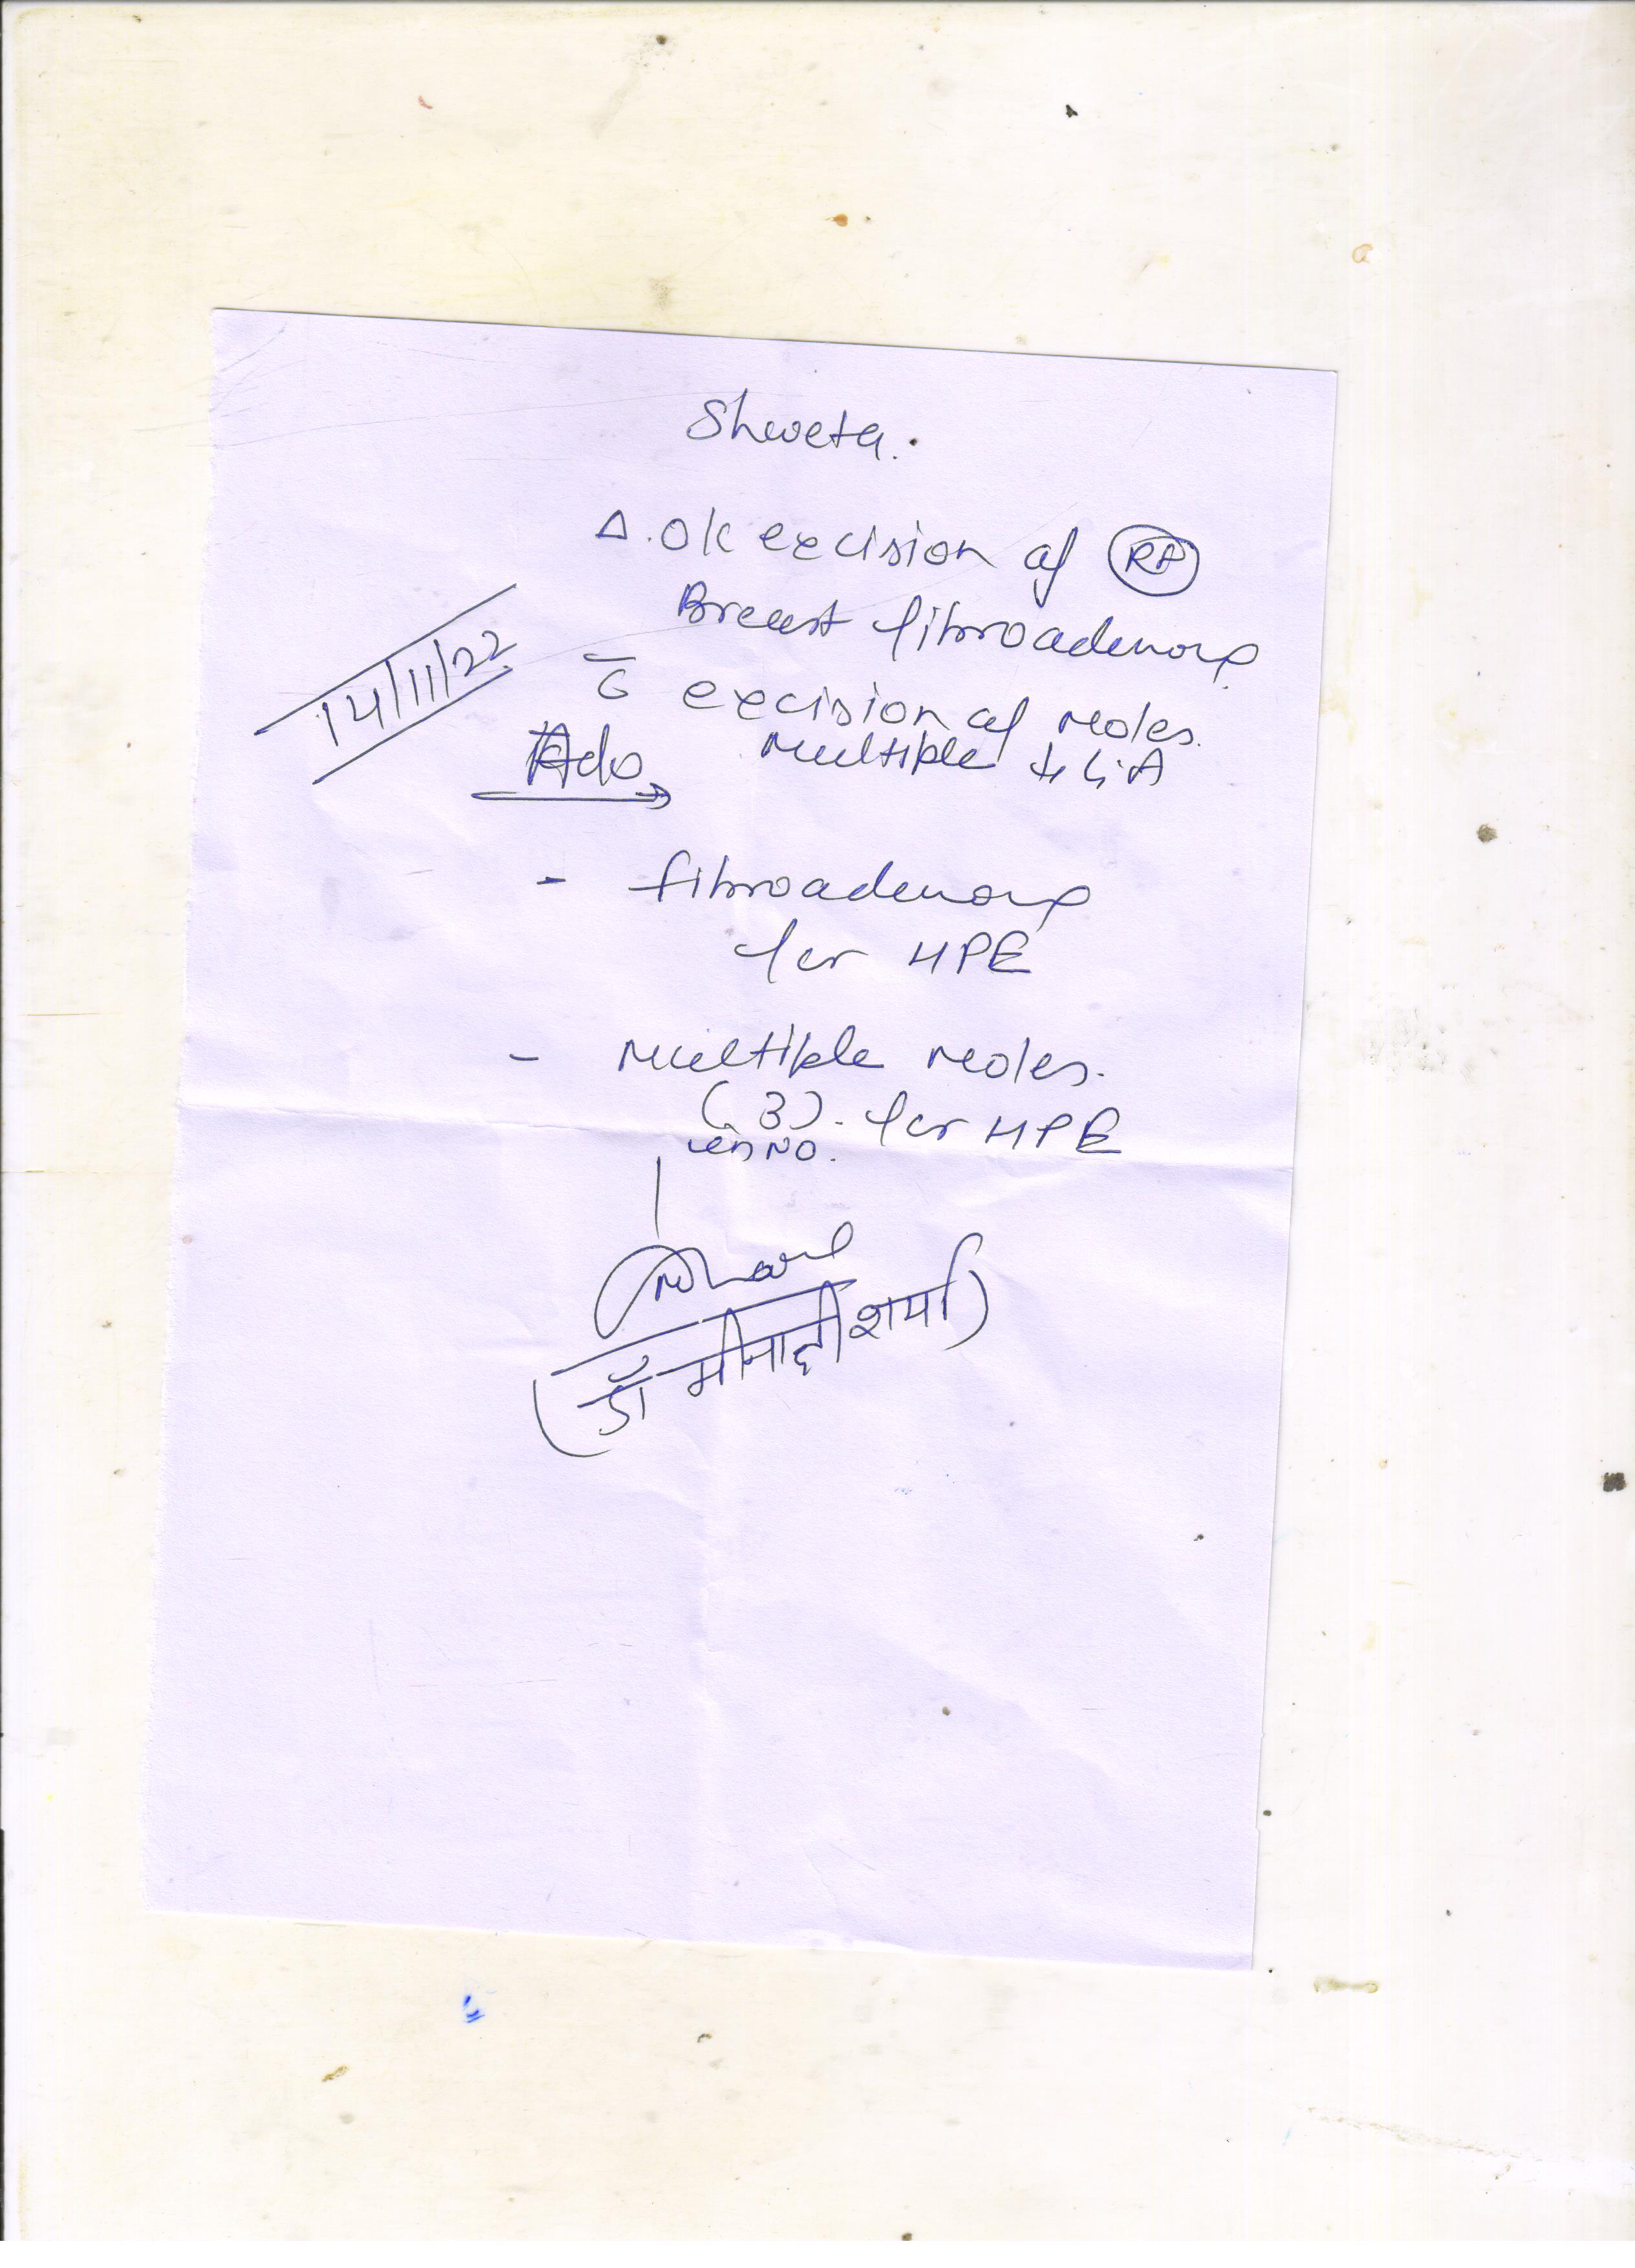 Shweta.
Δ. O/c excision of Rt
Breast fibroadenoma
14/11/22
c̄ excision of moles.
Multiple ↓ G.A
Adv
- fibroadenoma
for HPE
- Multiple moles.
(3). for HPE
in NO.
(डॉ मीनाक्षी शर्मा)